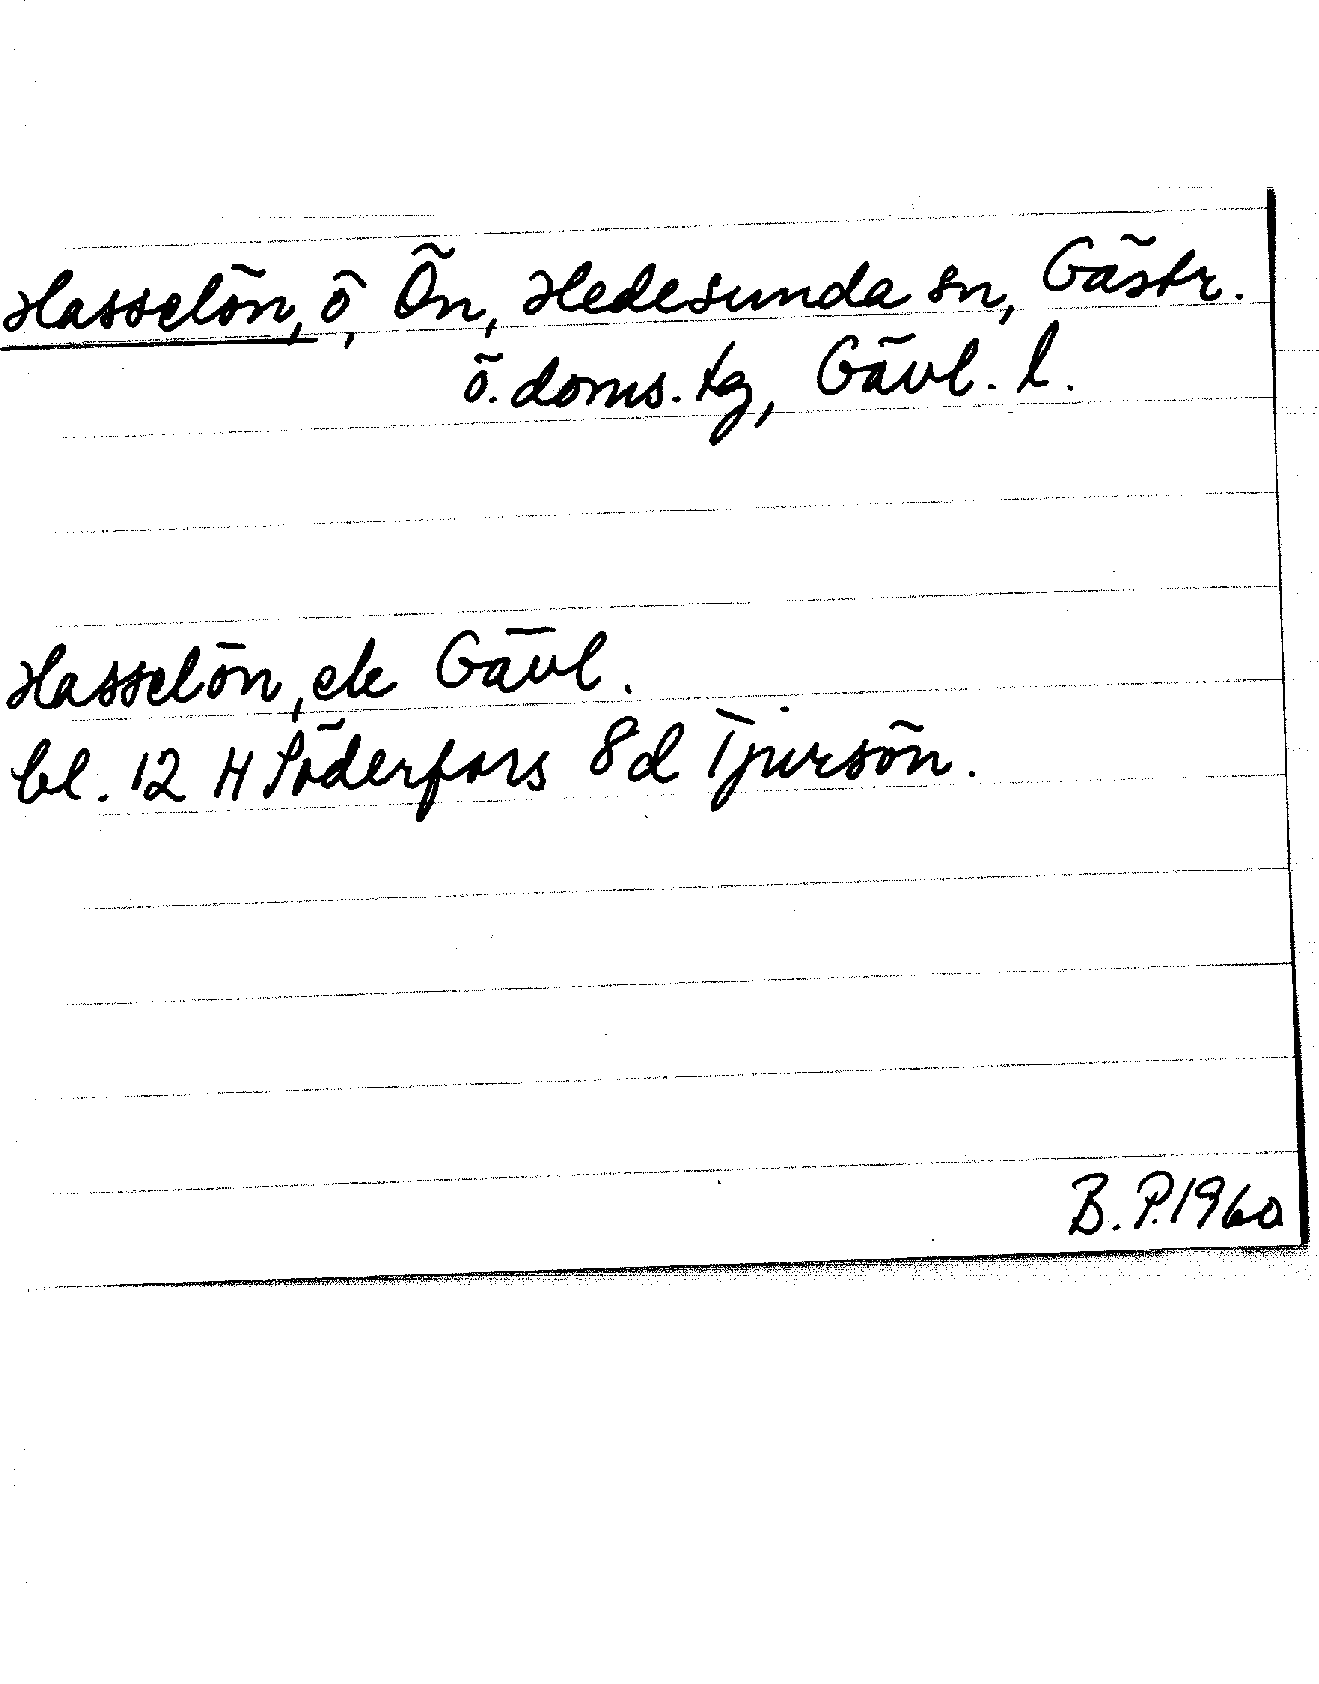 Hasselön, ö, Ön, Hedesunda sn, Gästr.
ö. doms. tg, Gävl. l.
Hasselön, ek Gävl.
bl. 12 H Söderfors 8d Tjursön.
B. P. 1960